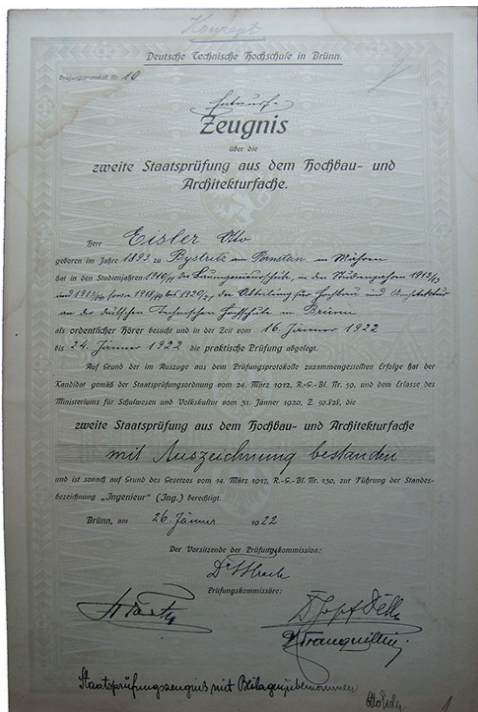 Konzept
Deutsche Technische Hochschule in Brünn.
Prüfungsprotokoll Nr. 10
Entwurf
Zeugnis
über die
zweite Staatsprüfung aus dem Hochbau- und
Architekturfache.
Herr Eisler Otto
geboren im Jahre 1893 zu Bystritz am Pernstein in Mähren
hat in den Studienjahren 1910/11 die Bauingenieurschule, in den Studienjahren 1912/13
und 1913/14 sowie 1918/19 bis 1920/21 die Abteilung für Hochbau und Architektur
an der deutschen Technischen Hochschule in Brünn
als ordentlicher Hörer besucht und in der Zeit vom 16. Jänner 1922
bis 24. Jänner 1922 die praktische Prüfung abgelegt.
Auf Grund der im Auszuge aus dem Prüfungsprotokolle zusammengestellten Erfolge hat der
Kandidat gemäß der Staatsprüfungsordnung vom 24. März 1912, R.-G.-Bl. Nr. 59, und dem Erlasse des
Ministeriums für Schulwesen und Volkskultur vom 31. Jänner 1920, Z. 50.828, die
zweite Staatsprüfung aus dem Hochbau- und Architekturfache
mit Auszeichnung bestanden
und ist sonach auf Grund des Gesetzes vom 14. März 1917, R.-G.-Bl. Nr. 130, zur Führung der Standes-
bezeichnung „Ingenieur" (Ing.) berechtigt.
Brünn, am 26. Jänner 1922
Der Vorsitzende der Prüfungskommission:
Prüfungskommissäre:
Staatsprüfungszeugnis mit Beilagen übernommen